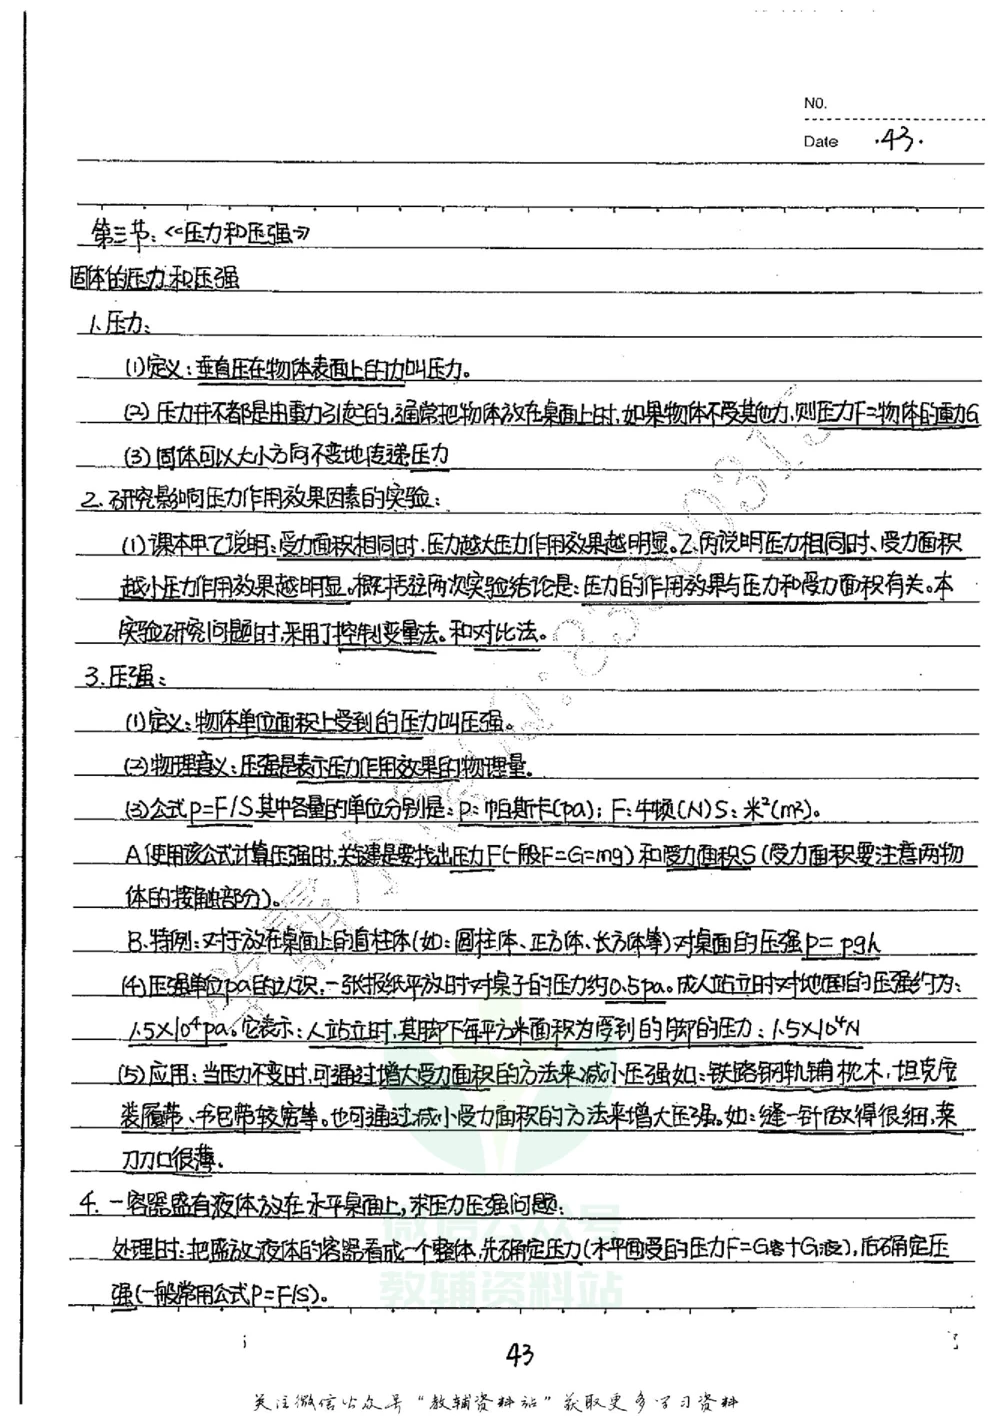 NO.
Date .43.
第三节:《压力和压强》
固体的压力和压强
1.压力:
(1)定义:垂直压在物体表面上的力叫压力。
(2)压力并不都是由重力引起的,通常把物体放在桌面上时,如果物体不受其他力,则压力F=物体的重力G
(3)固体可以大小方向不变地传递压力
2.研究影响压力作用效果因素的实验:
(1)课本甲乙说明:受力面积相同时、压力越大压力作用效果越明显。乙、丙说明压力相同时、受力面积
越小压力作用效果越明显。概括这两次实验结论是:压力的作用效果与压力和受力面积有关。本
实验研究问题时,采用了控制变量法。和对比法。
3.压强:
(1)定义:物体单位面积上受到的压力叫压强。
(2)物理意义:压强是表示压力作用效果的物理量。
(3)公式p=F/S其中各量的单位分别是:p:帕斯卡(pa);F:牛顿(N)S:米²(m²)。
A(使用该公式计算压强时,关键是要找出压力F(一般F=G=mg)和受力面积S(受力面积要注意两物
体的接触部分)。
B.特例:对于放在桌面上的直柱体(如:圆柱体、正方体、长方体等)对桌面的压强p=ρgh
(4)压强单位pa的认识,一张报纸平放时对桌子的压力约0.5pa。成人站立时对地面的压强约为:
1.5×10⁴pa。它表示:人站立时,其脚下每平方米面积为受到的脚的压力:1.5×10⁴N
(5)应用:当压力不变时,可通过增大受力面积的方法来减小压强如:铁路钢轨铺枕木,坦克安
装履带、书包带较宽等。也可通过减小受力面积的方法来增大压强。如:缝一针做得很细,菜
刀刀口很薄。
4.一容器盛有液体放在水平桌面上,求压力压强问题:
处理时:把盛放液体的容器看成一个整体,先确定压力(水平面受的压力F=G容+G液),后确定压
强(一般常用公式P=F/S)。
微信公众号
教辅资料站
43
关注微信公众号"教辅资料站"获取更多学习资料